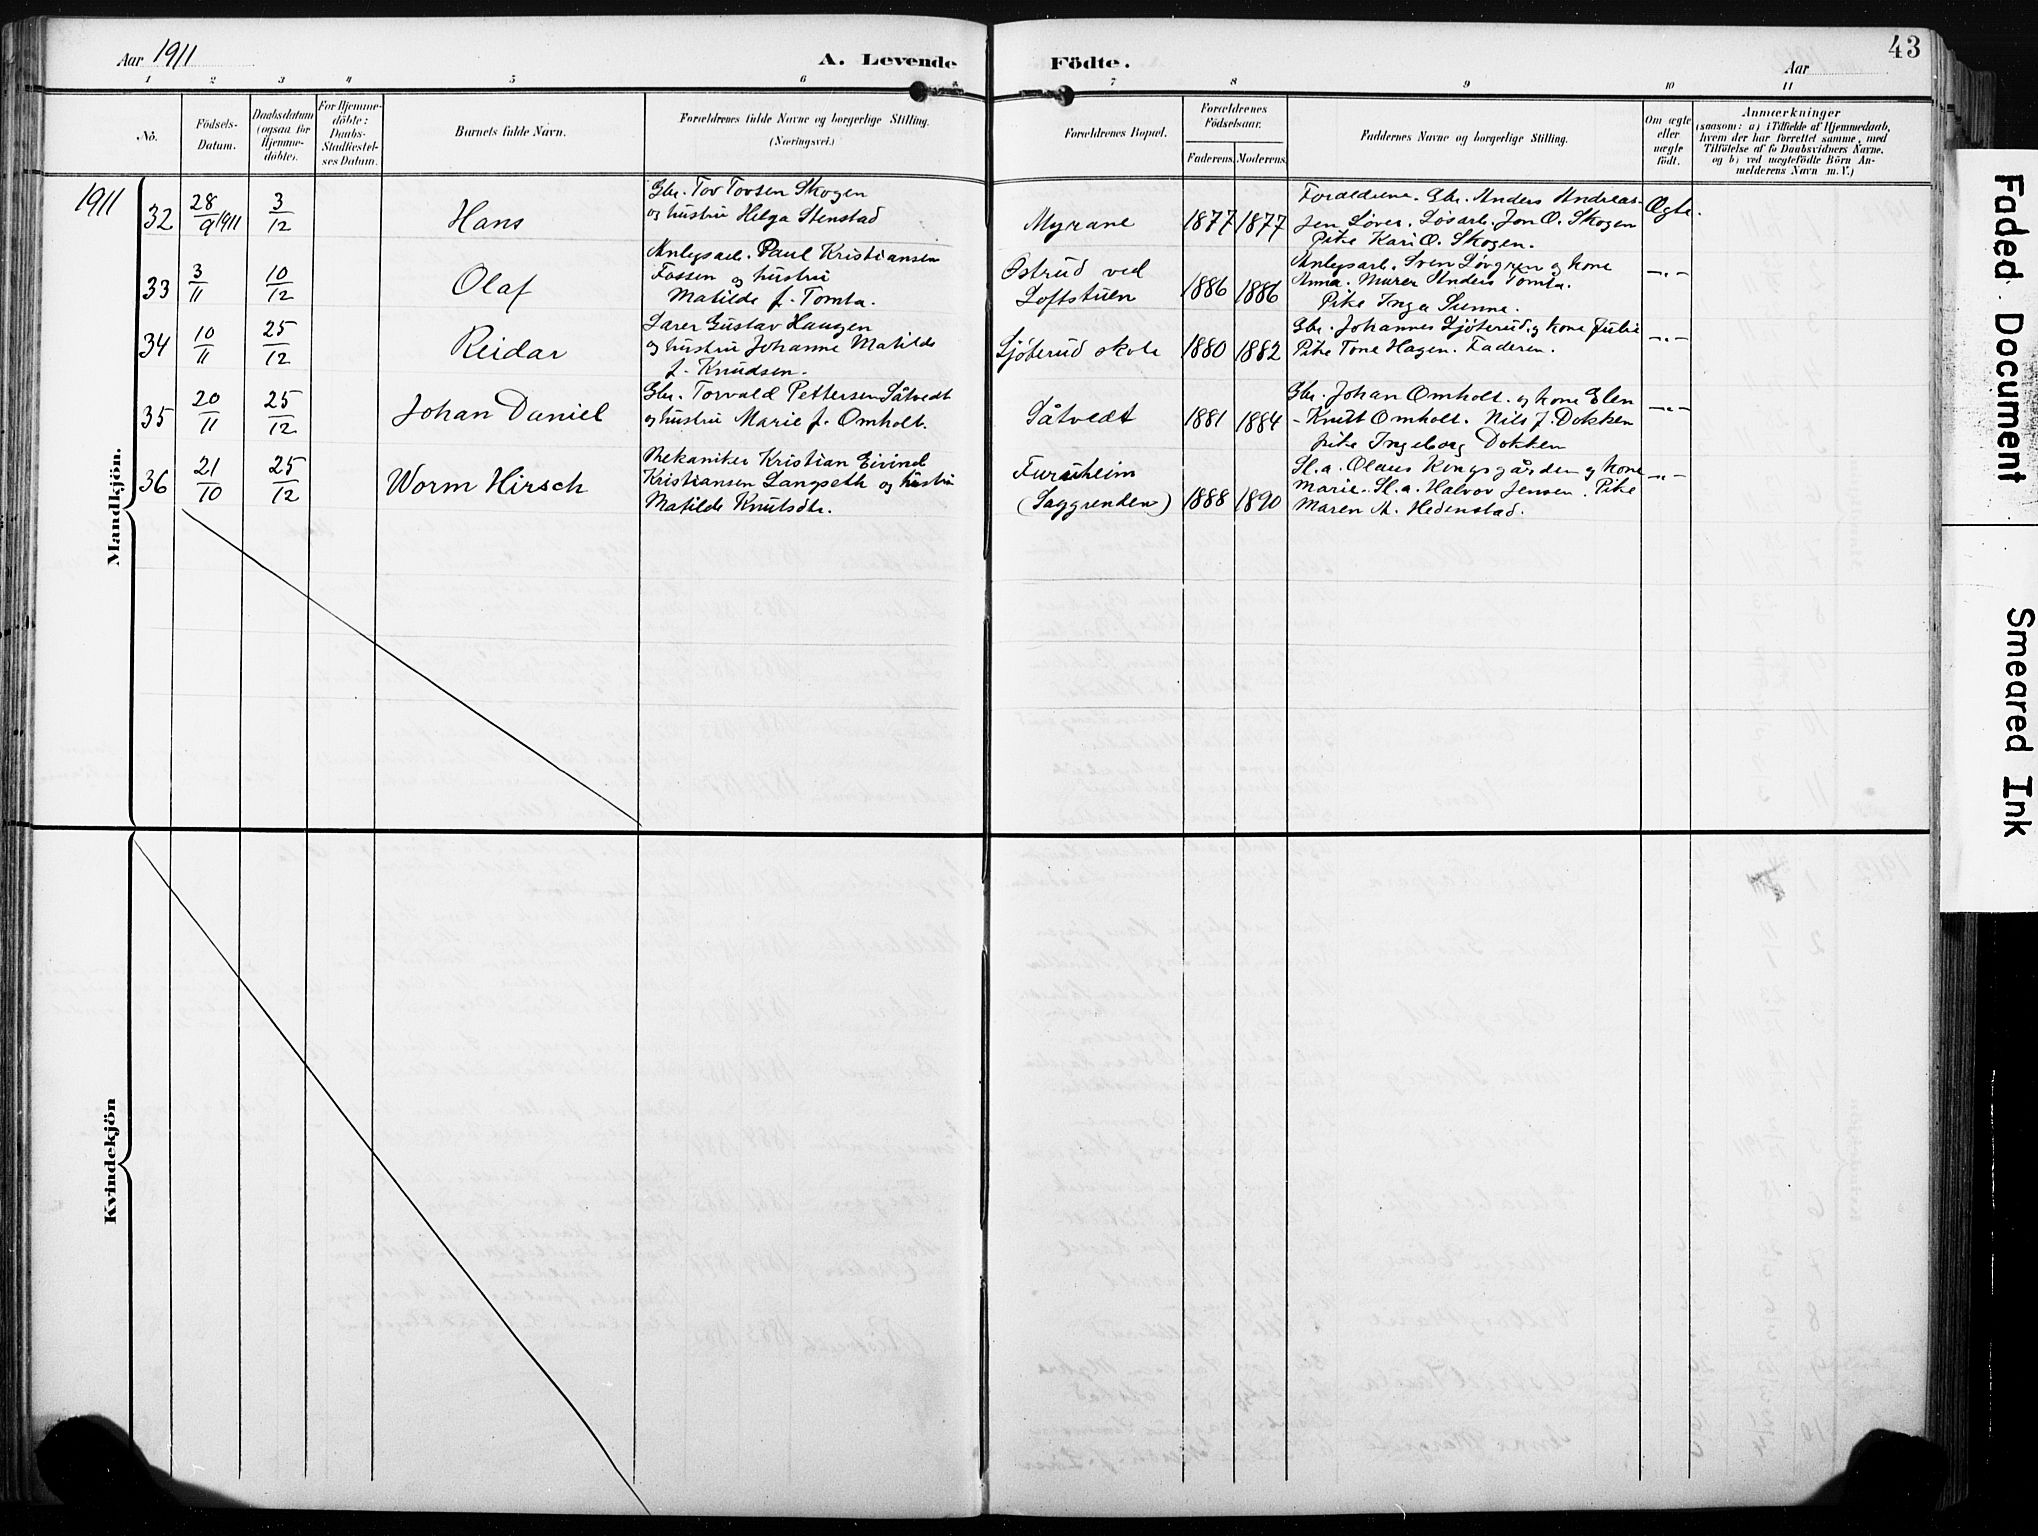 Aar 1911
A. Levende
Födte.
Aar
43
1 2 3 4 5 6 7 8 9 10 11
No.
Födsels-
Datum.
Daabsdatum
(ogsaa for
Hjemme-
döbte).
For Hjemme-
döbte:
Daabs-
Stadfæstel-
ses Datum.
Barnets fulde Navn.
Forældrenes fulde Navne og borgerlige Stilling.
(Næringsvei.)
Forældrenes Bopæl.
Forældrenes
Födselsaar.
Faderens. Moderens.
Faddernes Navne og borgerlige Stilling.
Om ægte
eller
uægte
født.
Anmærkninger
(saasom: a) i Tilfælde af Hjemmedaab,
hvem der har forrettet samme, med
Tilföielse af to Daabsvidners Navne,
og b) ved uægtefödte Börn An-
melderens Navn m. V.)
Mandkjön.
1911
32 28/9 1911 3/12 Hans
Gbr. Tov Tovsen Skogen
og hustru Helga Stenstad
Myrane 1877 1877
Foraldrene. Gbr. Anders Andreas-
sen Løver. Løsarb. Jon O. Skogen
Pike Kari O. Skogen.
Ægte.
33 3/11 10/12 Olaf
Anlegsarb. Paul Kristiansen
Fossen og hustru
Matilde f. Tomta.
Østrud ved
Loftstuen 1886 1886
Anlegsarb. Sven Løvgren og kone
Anna. Murer Anders Tomta.
Pike Inga Sunne.
-"-
34 10/11 25/12 Reidar
Lærer Gustav Haugen
og hustru Johanne Matilde
f. Knudsen.
Ljøterud skole 1880 1882
Gbr. Johannes Ljøterud og kone Julie
Pike Tone Hagen. Faderen.
-"-
35 20/11 25/12 Johan Daniel
Gbr. Torvald Pettersen Såtvedt
og hustru Marie f. Omholt.
Såtvedt 1881 1884
Gbr. Johan Omholt og kone Elen
- Knut Omholt. Nils J. Dokken
pike Ingeborg Dokken
-"-
36 21/10 25/12 Worm Hirsch
Mekaniker Kristian Eivind
Kristiansen Langseth og hustru
Matilde Knutsdtr.
Furuheim
(Saggrenden) 1888 1890
Sl.a. Olaus Kongsgården og kone
Marie. Sl.a. Halvor Jensen. Pike
Maren A. Hedenstad.
-"-
Kvindekjön
Faded Document
Smeared Ink